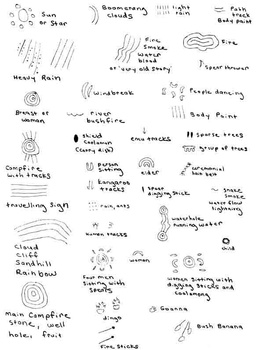 Sun
or
Star
Boomerang
clouds
light
rain
Path
track
Body paint
Heavy Rain
Fire
Smoke
Water
blood
or 'very old story'
Fire
Spear thrower
windbreak
People dancing
Breast or
woman
river
bushfire
Body Paint
shield
Coolamon
(Carry dish)
emu tracks
sparse trees
group of trees
Campfire
with tracks
person
sitting
elder
ceremonial
hair belt
Kangaroo
tracks
spear
digging stick
snake
smoke
water flow
lightning
travelling Sign
rain, ants
waterhole
running water
human tracks
child
Cloud
Cliff
Sandhill
Rainbow
Four men
Sitting with
Spears
woman
women sitting with
digging sticks and
coolamons
Main Campfire
stone, well
hole, fruit
dingo
Goanna
Fire sticks
Bush Banana